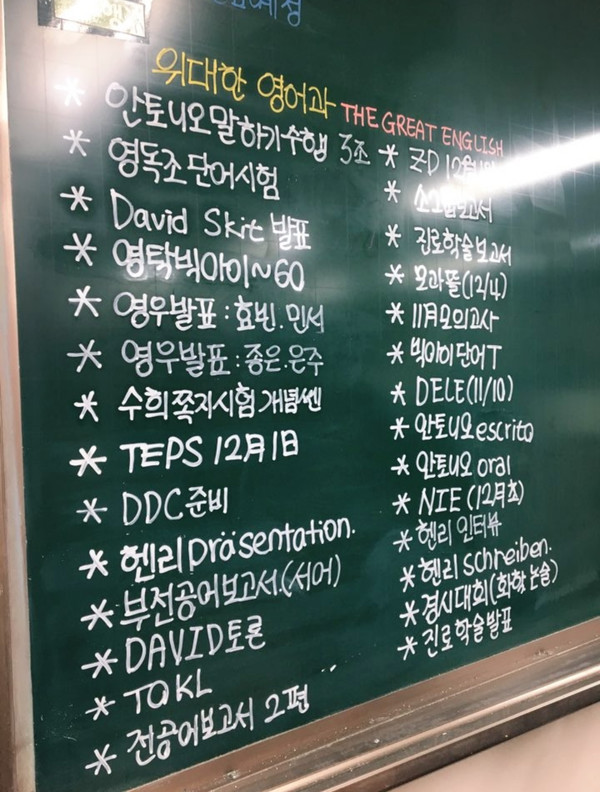 위대한 영어과 THE GREAT ENGLISH
* 안토니오말하기수행 3조
* 영독조단어시험
* David Skit 발표
* 영탁빅아이~60
* 영우발표:효빈.민서
* 영우발표:좋은.은주
* 수희쪽지시험개념쎈
* TEPS 12月1日
* DDC준비
* 헨리präsentation.
* 부전공어보고서.(서어)
* DAVID토론
* TOKL
* 전공어보고서 2편
* ZD 12월
* 보고서
* 진로학술보고서
* 모과똘(12/4)
* 11月모의고사
* 빅아이단어T
* DELE(11/10)
* 안토니오escrito
* 안토니오 oral
* NIE (12月초)
* 헨리 인터뷰
* 헨리 schreiben.
* 경시대회(화학, 논술)
* 진로학술발표